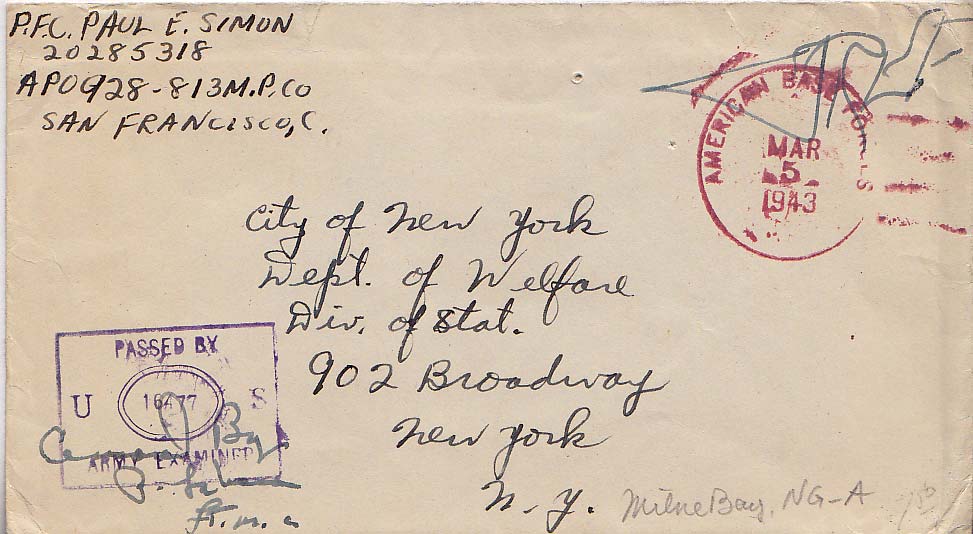 P.F.C. PAUL E. SIMON
20285318
APO928-813M.P.CO
SAN FRANCISCO, C.
AMERICAN BASE FORCES
MAR
5
1943
City of New York
Dept. of Welfare
Div. of Stat.
902 Broadway
New York
N.Y.
PASSED BY
U S
ARMY EXAMINER
Censored By
Milne Bay, NG-A